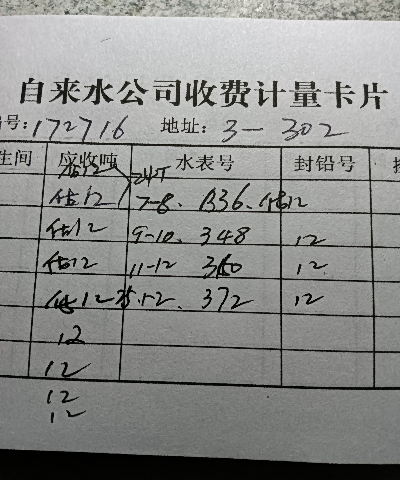 自来水公司收费计量卡片
编号:172716 地址:3-302
生间 应收吨 水表号 封铅号
估12 24T
估12 7-8. 336. 估12
估12 9-10. 348 12
估12 11-12 360 12
估12 25.1-2. 372 12
12
12
12
12